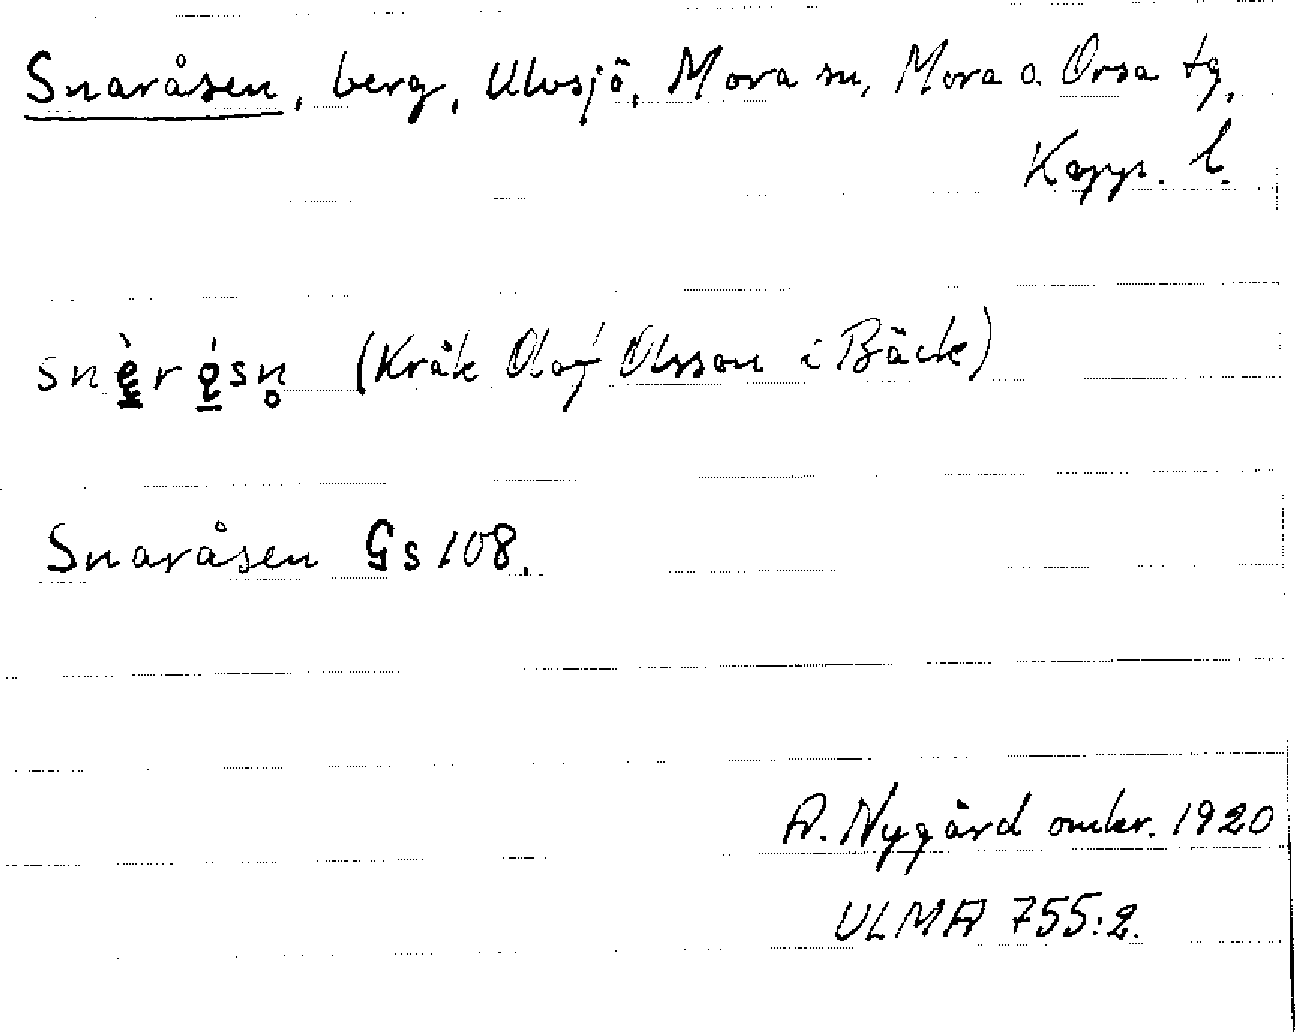 Snaråsen, berg, Ulvsjö, Mora sn, Mora o. Orsa tg,
Kopp. l.
snè̱r é̱sn̥ (Kråk Olof Olsson i Bäck)
Snaråsen Gs 108.
A. Nygård omkr. 1920
ULMA 755:2.